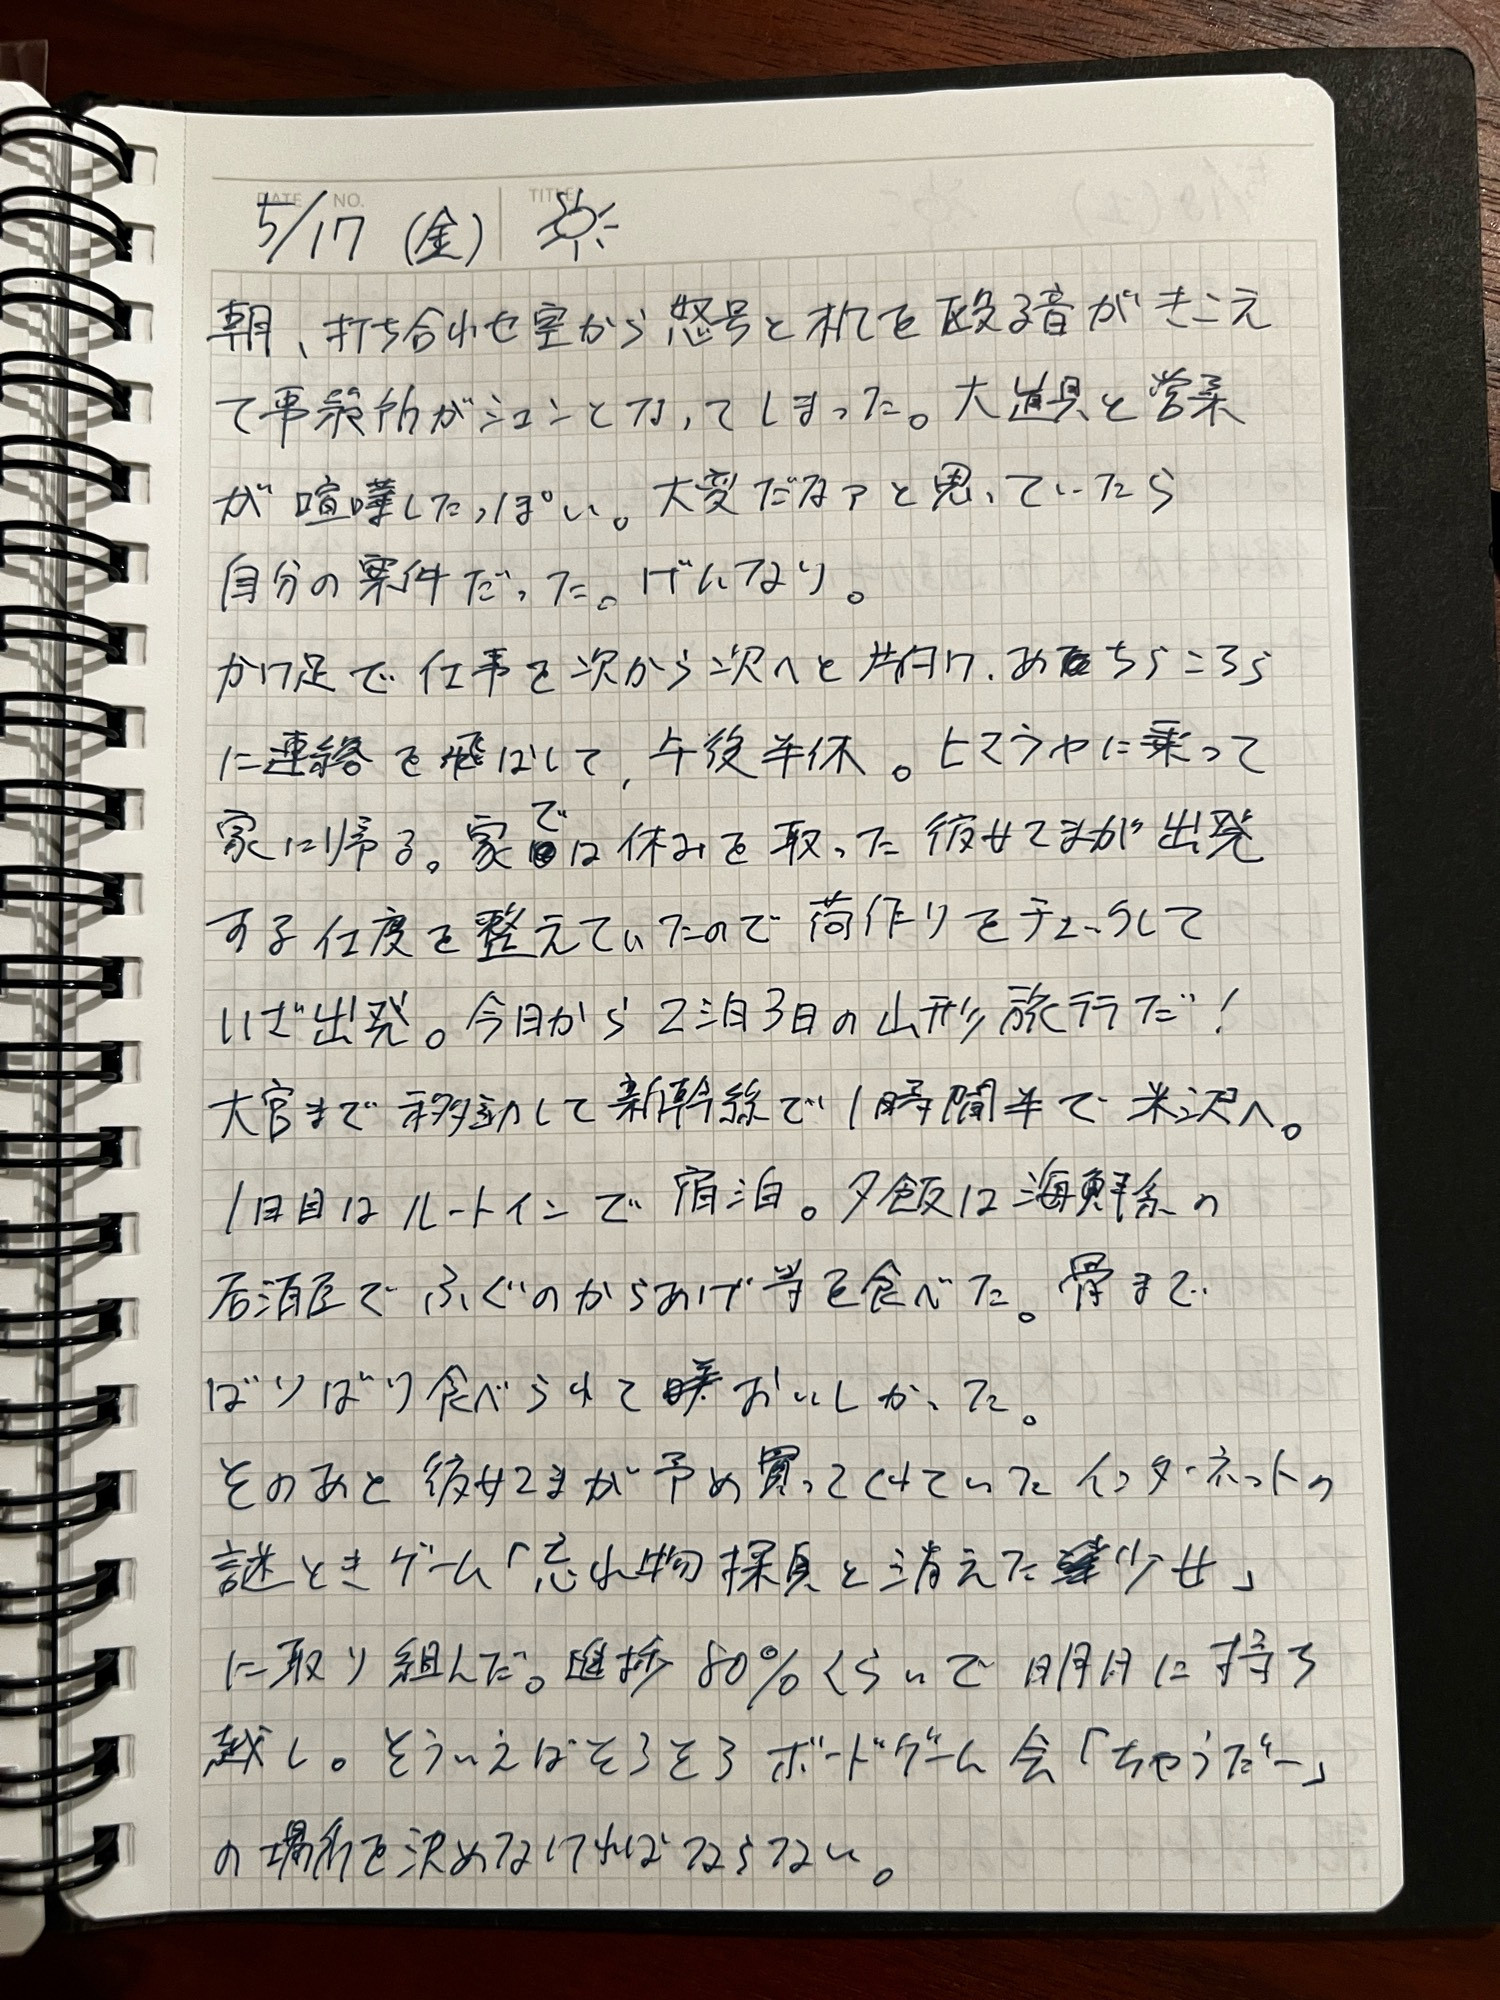 DATE NO. TITLE
5/17 (金)
朝、打ち合わせ室から怒号と机を殴る音がきこえ
て事務所がシュンとなってしまった。大道具と営業
が喧嘩したっぽい。大変だなァと思っていたら
自分の案件だった。げんなり。
かけ足で仕事を次から次へと片付け、あちらこちら
に連絡を飛ばして、午後半休。ヒマラヤに乗って
家に帰る。家では休みを取った彼女さまが出発
する仕度を整えていたので荷作りをチェックして
いざ出発。今日から2泊3日の山形旅行だ!
大宮まで移動して新幹線で1時間半で米沢へ。
1日目はルートインで宿泊。夕飯は海鮮系の
居酒屋でふぐのからあげ等を食べた。骨まで
ばりばり食べられておいしかった。
そのあと彼女さまが予め買ってくれていたインターネットの
謎ときゲーム「忘れ物探員と消えた少女」
に取り組んだ。進捗80%くらいで明日に持ち
越し。そういえばそろそろボードゲーム会「ちゃうだー」
の場所を決めなければならない。